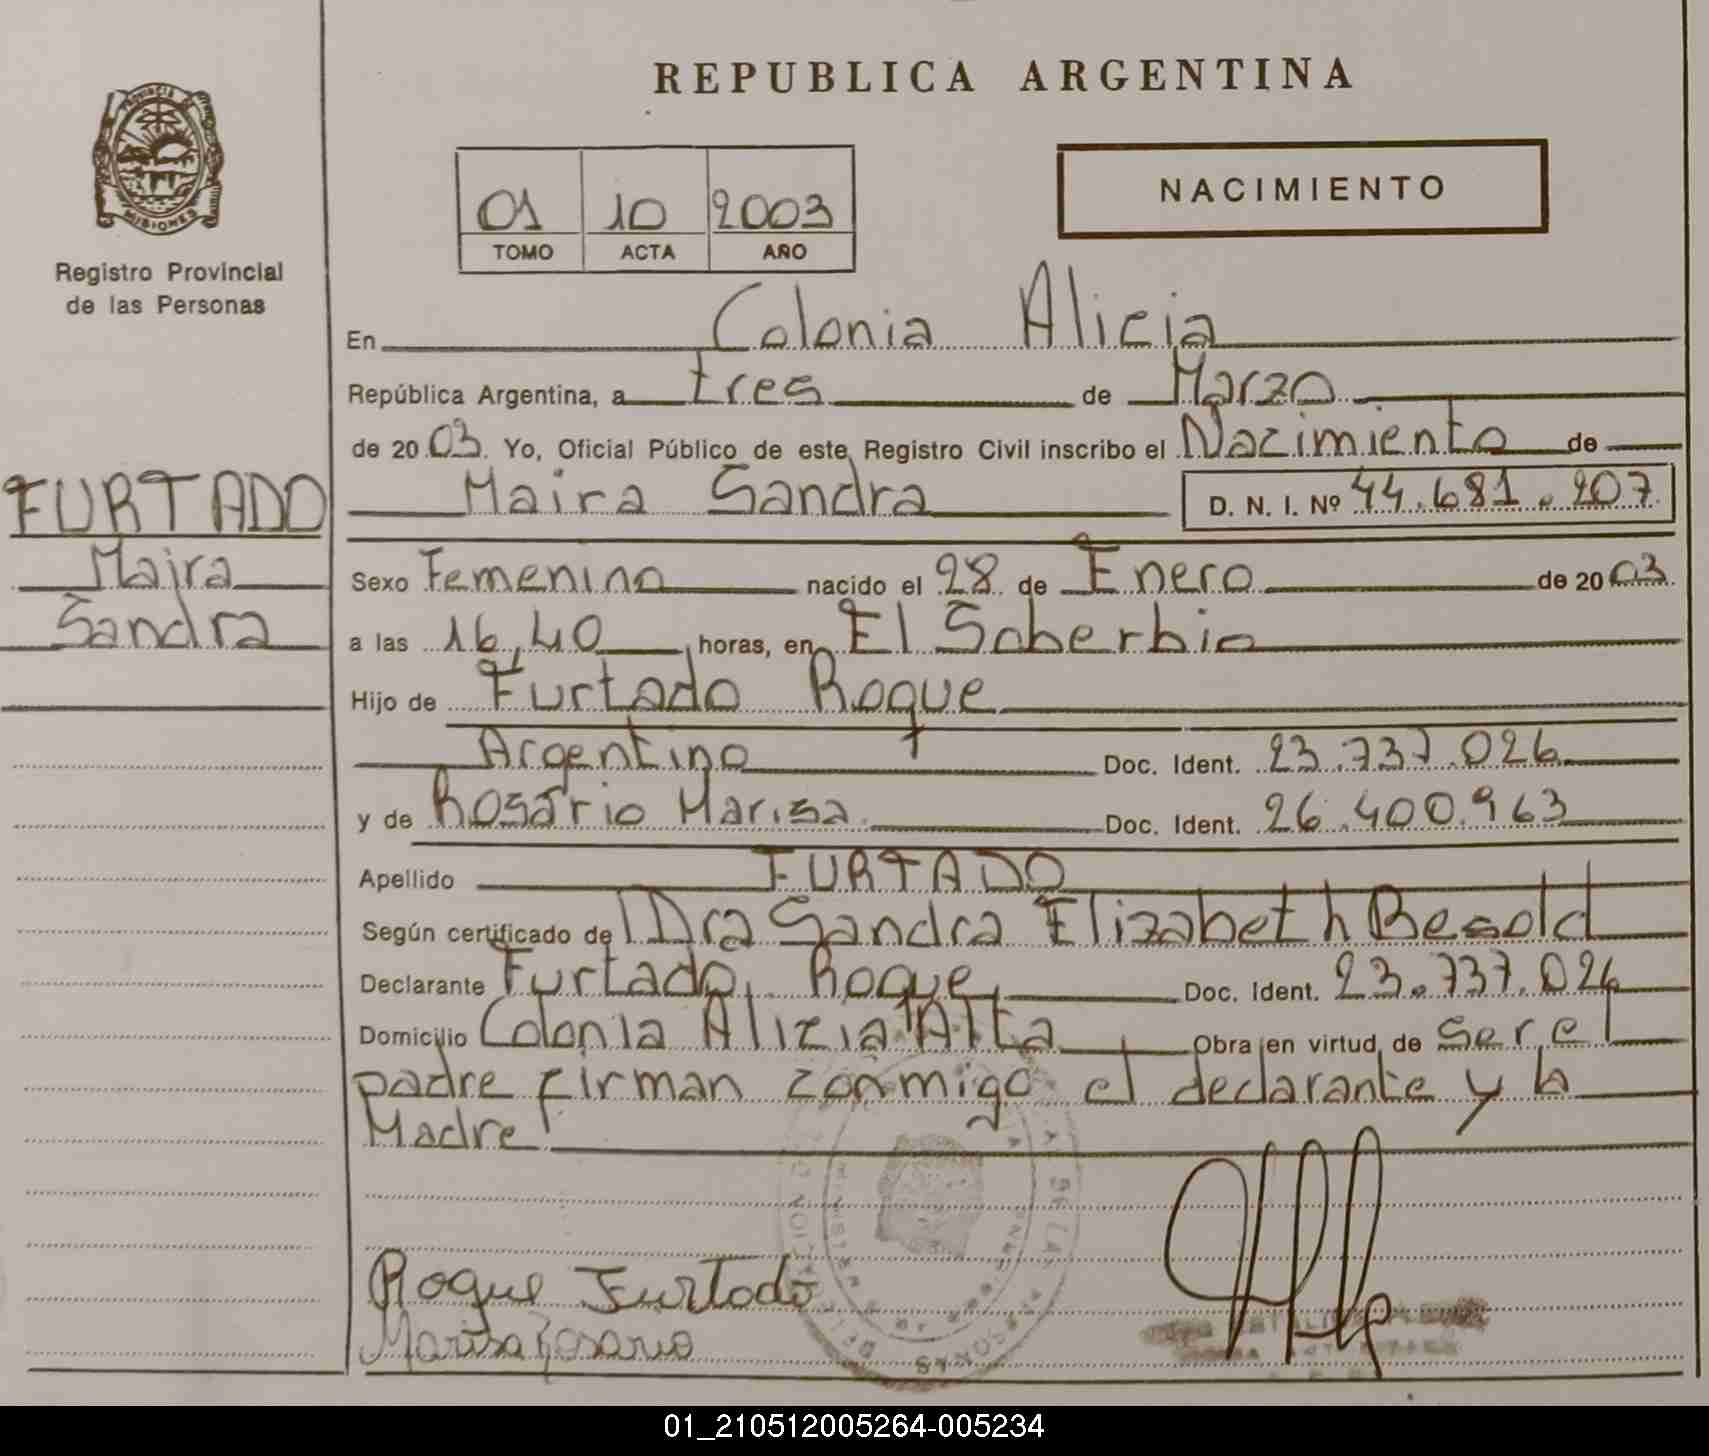 REPUBLICA ARGENTINA
PROVINCIA DE
MISIONES
Registro Provincial
de las Personas
01 10 2003
TOMO ACTA AÑO
NACIMIENTO
En Colonia Alicia
República Argentina, a tres de Marzo
de 20 03. Yo, Oficial Público de este Registro Civil inscribo el Nacimiento de
Maira Sandra D. N. I. Nº 44.681.207
FURTADO
Maira
Sandra
Sexo Femenino nacido el 28 de Enero de 20 03
a las 16,40 horas, en El Soberbio
Hijo de Furtado Roque
Argentino Doc. Ident. 23.737.026
y de Rosario Marisa Doc. Ident. 26.400.963
Apellido FURTADO
Según certificado de Dra Sandra Elizabeth Besold
Declarante Furtado, Roque, Doc. Ident. 23.737.026
Domicilio Colonia Alicia Alta Obra en virtud de ser el
padre firman conmigo el declarante y la
Madre
Roque Furtado
Marisa Rosario
01_210512005264-005234